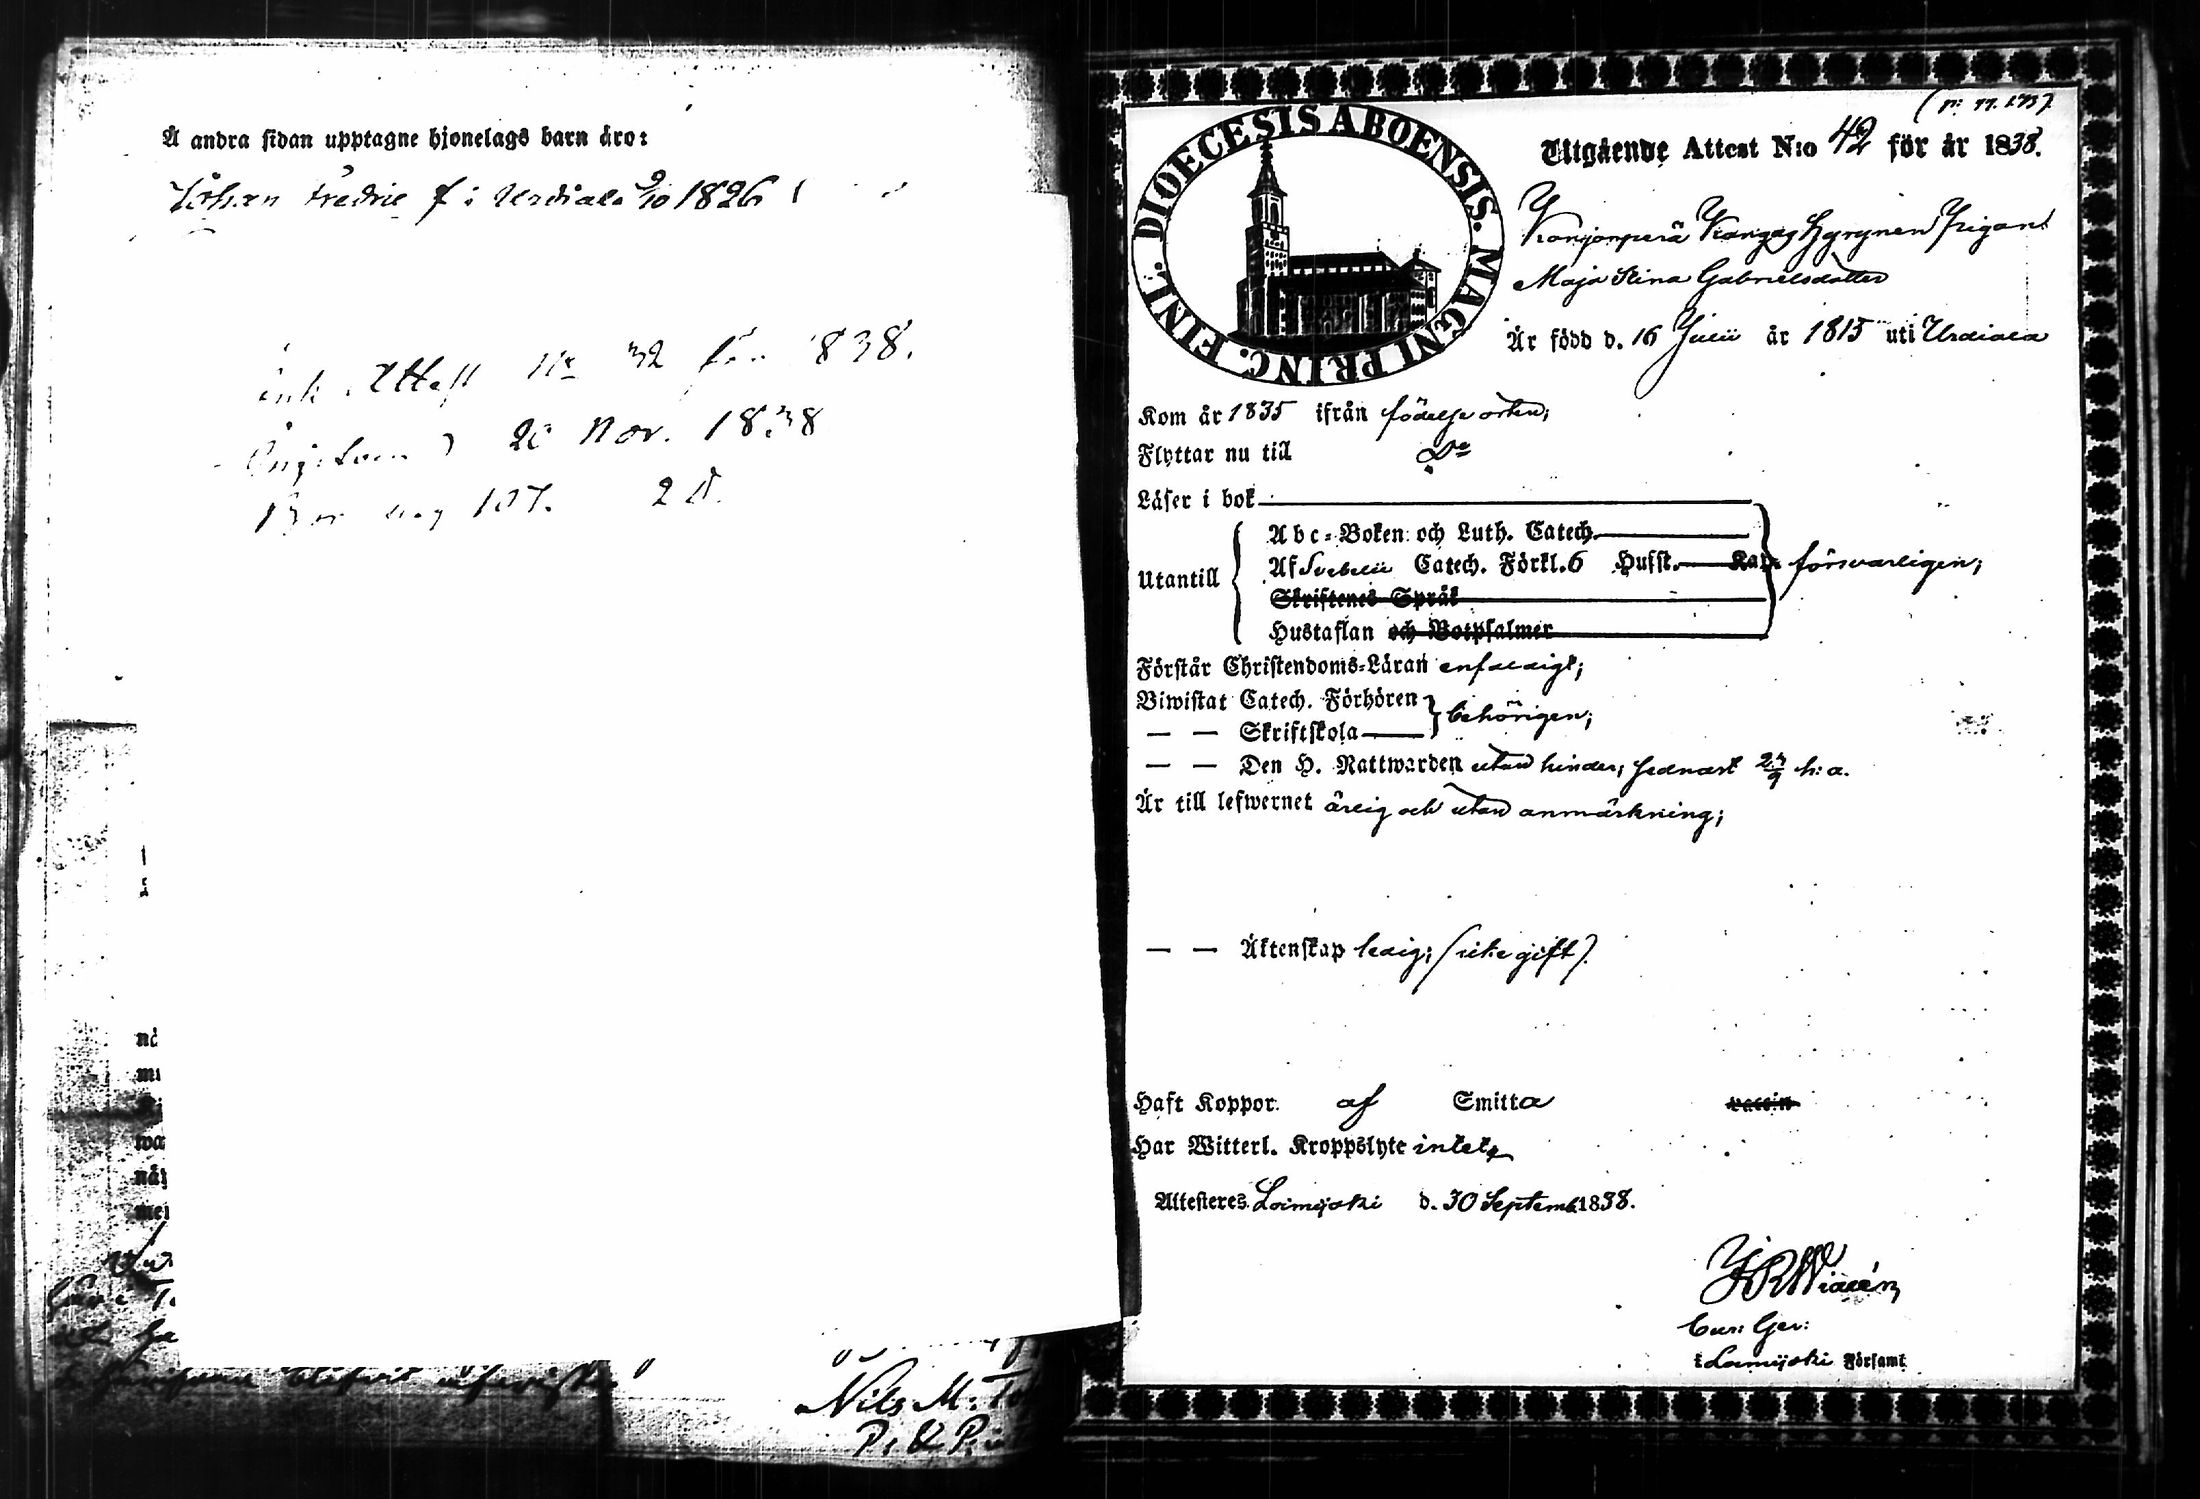 Å andra sidan upptagne hjonelags barn äro:
Johan Fredric f i Urdiala 9/10 1826
ink. Attest No 32 för 1838.
20 Nov. 1838
pag 107. 2 d.
nä
mi
wa
när
mei
Nils M:
DIOECESIS ABOENSIS. MAGNI PRINC. FINL.
Utgående Attest N:o 42 för år 1838.
Kangas Hyrynen Pigan
Maja Stina Gabrielsdotter
Är född d. 16 Julii år 1815 uti Urdiala
Kom år 1835 ifrån födelse orten;
Flyttar nu till Do
Läser i bok
Abc-Boken och Luth. Catech.
Utantill
Af Svebelii Catech. Förkl. 6 Hufst. Kap. försvarligen;
Skriftenes Språk
Hustaflan och Botpsalmer
Förstår Christendoms-Läran enfaldigt;
Biwistat Catech. Förhören
behörigen;
— — Skriftskola
— — Den H. Nattwarden utan hinder, sednast 23/9 h:a.
Är till lefwernet ärlig och utan anmärkning;
— — Äktenskap ledig; (icke gift).
Haft Koppor af Smitta vaccin
Har Witterl. Kroppslyte intet,
Attesteres Loimijoki d. 30 Septemb. 1838.
Cur: Ger:
i Loimijoki Församl